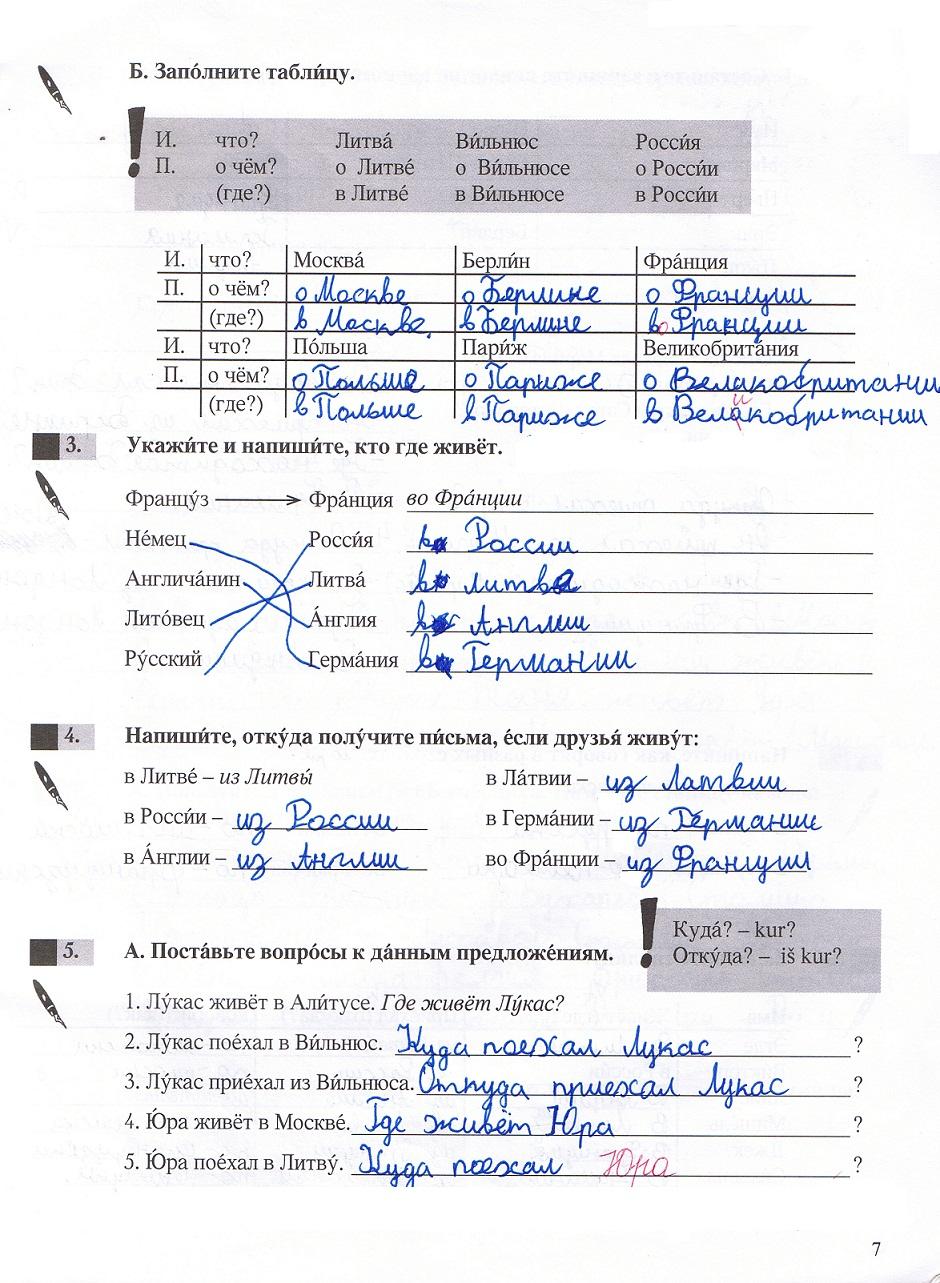 Б. Запо́лните табли́цу.
! И. что? Литва́ Ви́льнюс Росси́я
П. о чём? о Литве́ о Ви́льнюсе о Росси́и
(где?) в Литве́ в Ви́льнюсе в Росси́и
И. что? Москва́ Берли́н Фра́нция
П. о чём? о Москве о Берлине о Франции
(где?) в Москве. в Берлине во Франции
И. что? По́льша Пари́ж Великобрита́ния
П. о чём? о Польше о Париже о Велакобритании
(где?) в Польше в Париже в Велакобритании
и
3. Укажи́те и напиши́те, кто где живёт.
Францу́з Фра́нция во Фра́нции
Не́мец Росси́я в России
Англича́нин Литва́ в литве
Лито́вец А́нглия в Англии
Ру́сский Герма́ния в Германии
4. Напиши́те, отку́да полу́чите пи́сьма, е́сли друзья́ живу́т:
в Литве́ – из Литвы́ в Ла́твии – из Латвии
в Росси́и – из России в Герма́нии – из Германии
в А́нглии – из Англии во Фра́нции – из Франции
! Куда́? – kur?
Отку́да? – iš kur?
5. А. Поста́вьте вопро́сы к да́нным предложе́ниям.
1. Лу́кас живёт в Али́тусе. Где живёт Лу́кас?
2. Лу́кас пое́хал в Ви́льнюс. Куда поехал Лукас ?
3. Лу́кас прие́хал из Ви́льнюса. Откуда приехал Лукас ?
4. Ю́ра живёт в Москве́. Где живёт Юра ?
5. Ю́ра пое́хал в Литву́. Куда поехал Юра ?
7